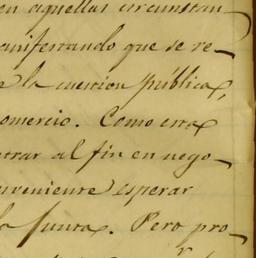 en aquellas circunstan-
anifestando que se re-
la cuestion pública,
omercio. Como era
trar al fin en nego-
nveniente esperar
la Junta. Pero pro-